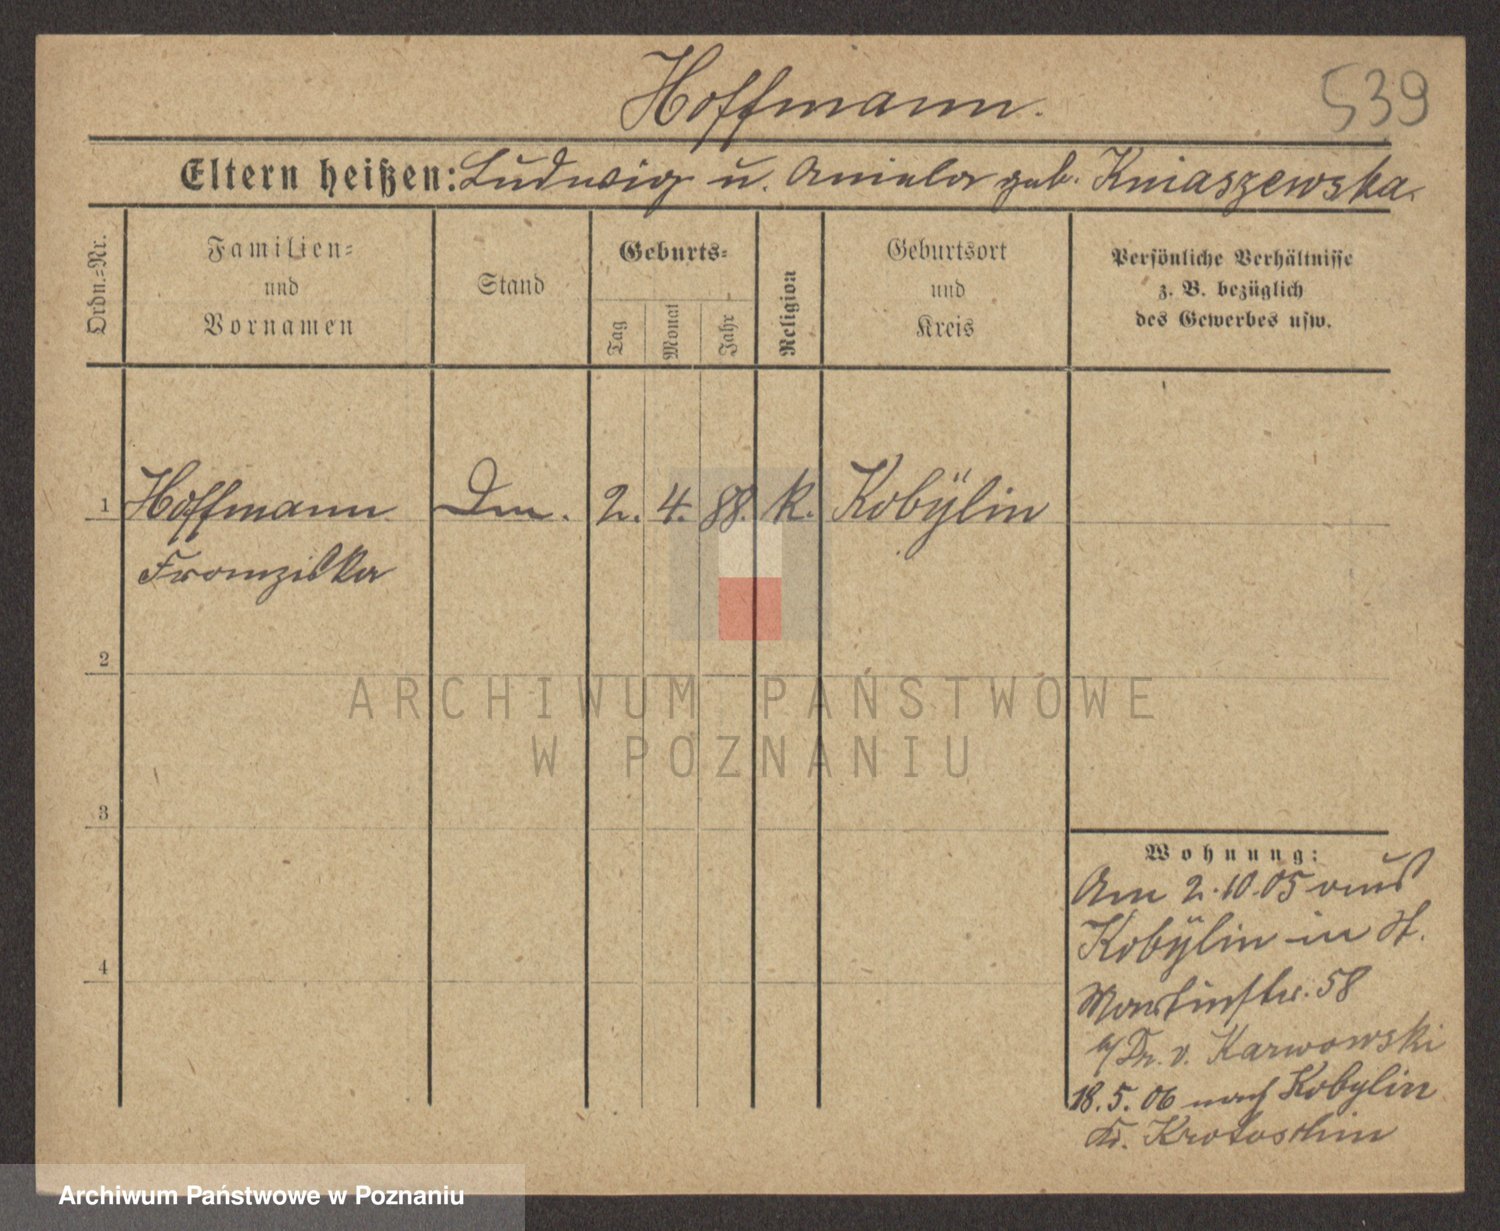 Hoffmann.
539
Eltern heißen: Ludwig u. Aniela geb. Kniaszewska.
Ordn.=Nr.
Familien=
und
Vornamen
Stand
Geburts=
Tag
Monat
Jahr
Religion
Geburtsort
und
Kreis
Persönliche Verhältnisse
z. B. bezüglich
des Gewerbes usw.
1 Hoffmann Dm. 2. 4. 88. k. Kobÿlin
Franziska
2
3
4
Wohnung:
Am 2.10.05 aus
Kobÿlin in St.
Martinstr. 58
b/Dr. v. Karwowski
18.5.06 nach Kobylin
Kr. Krotoschin
ARCHIWUM PAŃSTWOWE
W POZNANIU
Archiwum Państwowe w Poznaniu